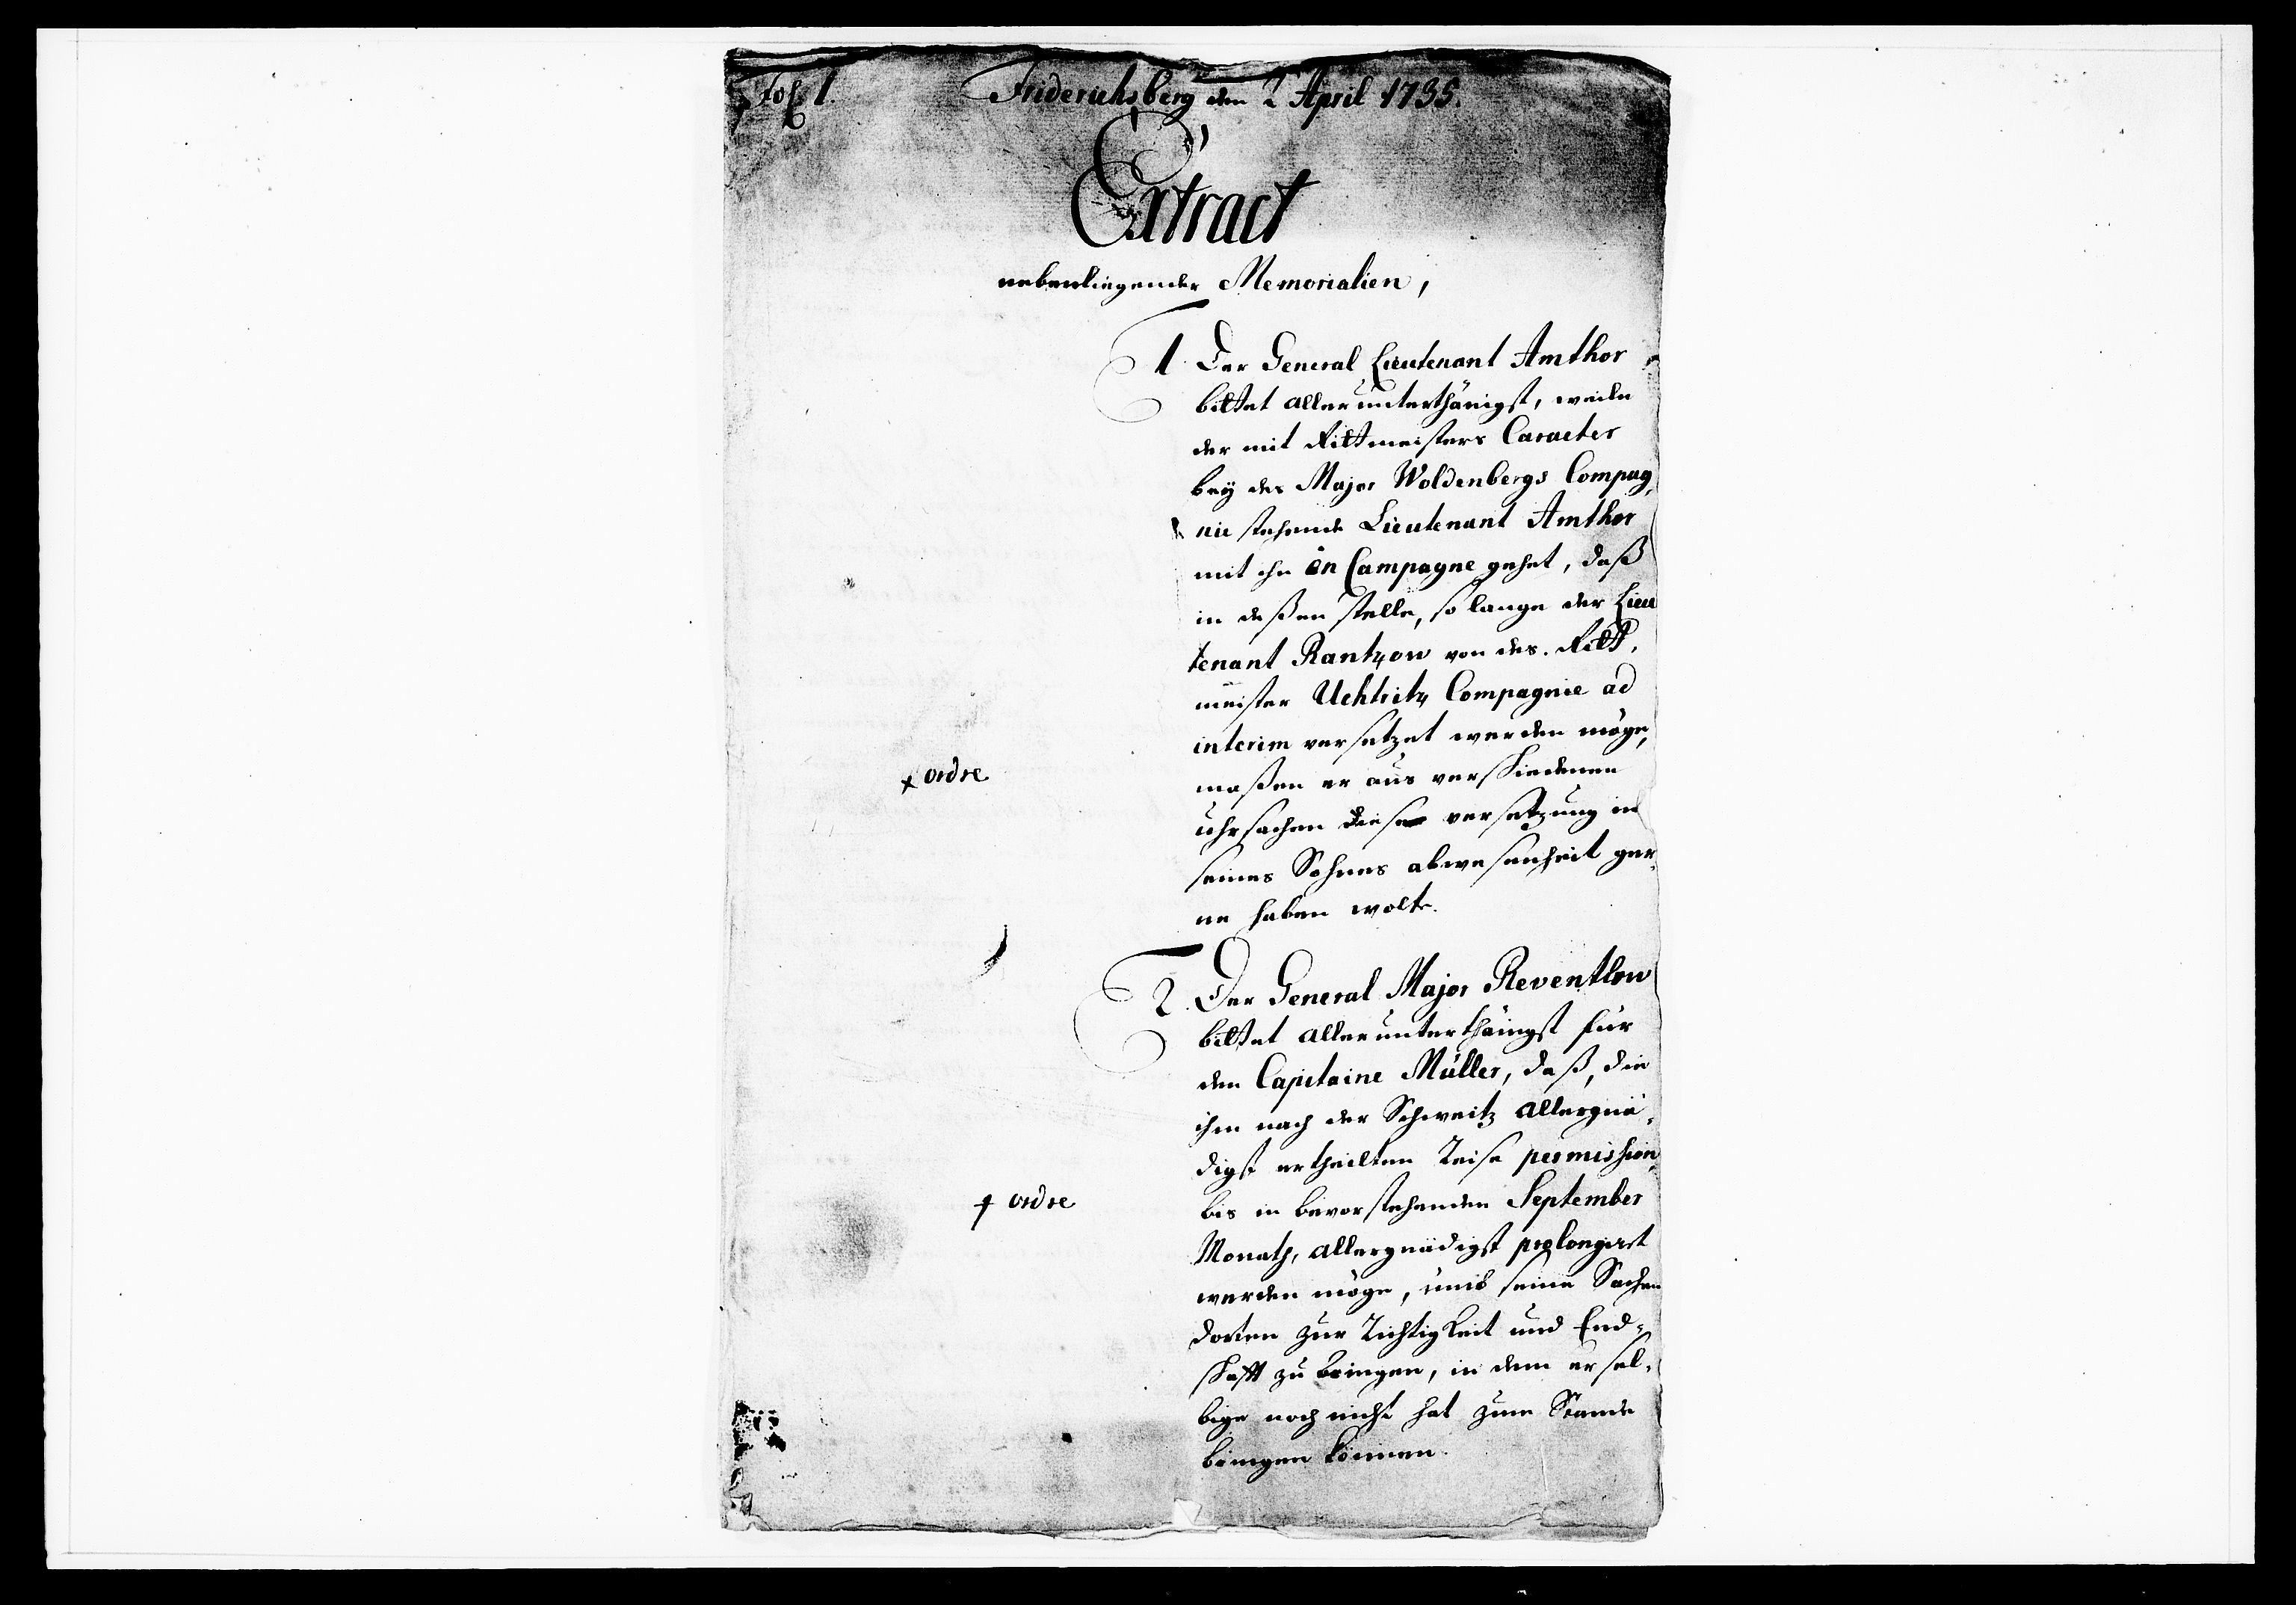 Fol. 1.
Friderichsberg den 2 April 1735.
Extract
nebenliegender Memorialien,
1. Der General Lieutenant Amthor
bittet allerunterthänigst, weile
der mit Rittmeisters Caracter
bey des Major Woldenbergs Compag,
nie stehende Lieutenant Amthor
mit ihn en Campagne gehet, daß
in deßen stelle, so lange der Lieu
tenant Rantzow von des Ritt,
meister Uchtritz Compagnie ad
interim versetzet werden möge,
maßen er aus verschiedenen
uhrsachen diese versetzung in
seines Sohnes abwesenheit ger,
ne haben wolte.
x ordre
2. Der General Major Reventlow
bittet allerunterthänigst für
den Capitaine Müller, daß, die
ihm nach der Schweitz allergnä,
digst ertheilten Reise permission,
bis in bevorstehenden September
Monath, allergnädigst prolongiret
werden möge, umb seine Sachen
dorten zur Richtigkeit und End-
schafft zu bringen, in dem er sel,
bige noch nicht hat zum Stande
bringen können.
x ordre